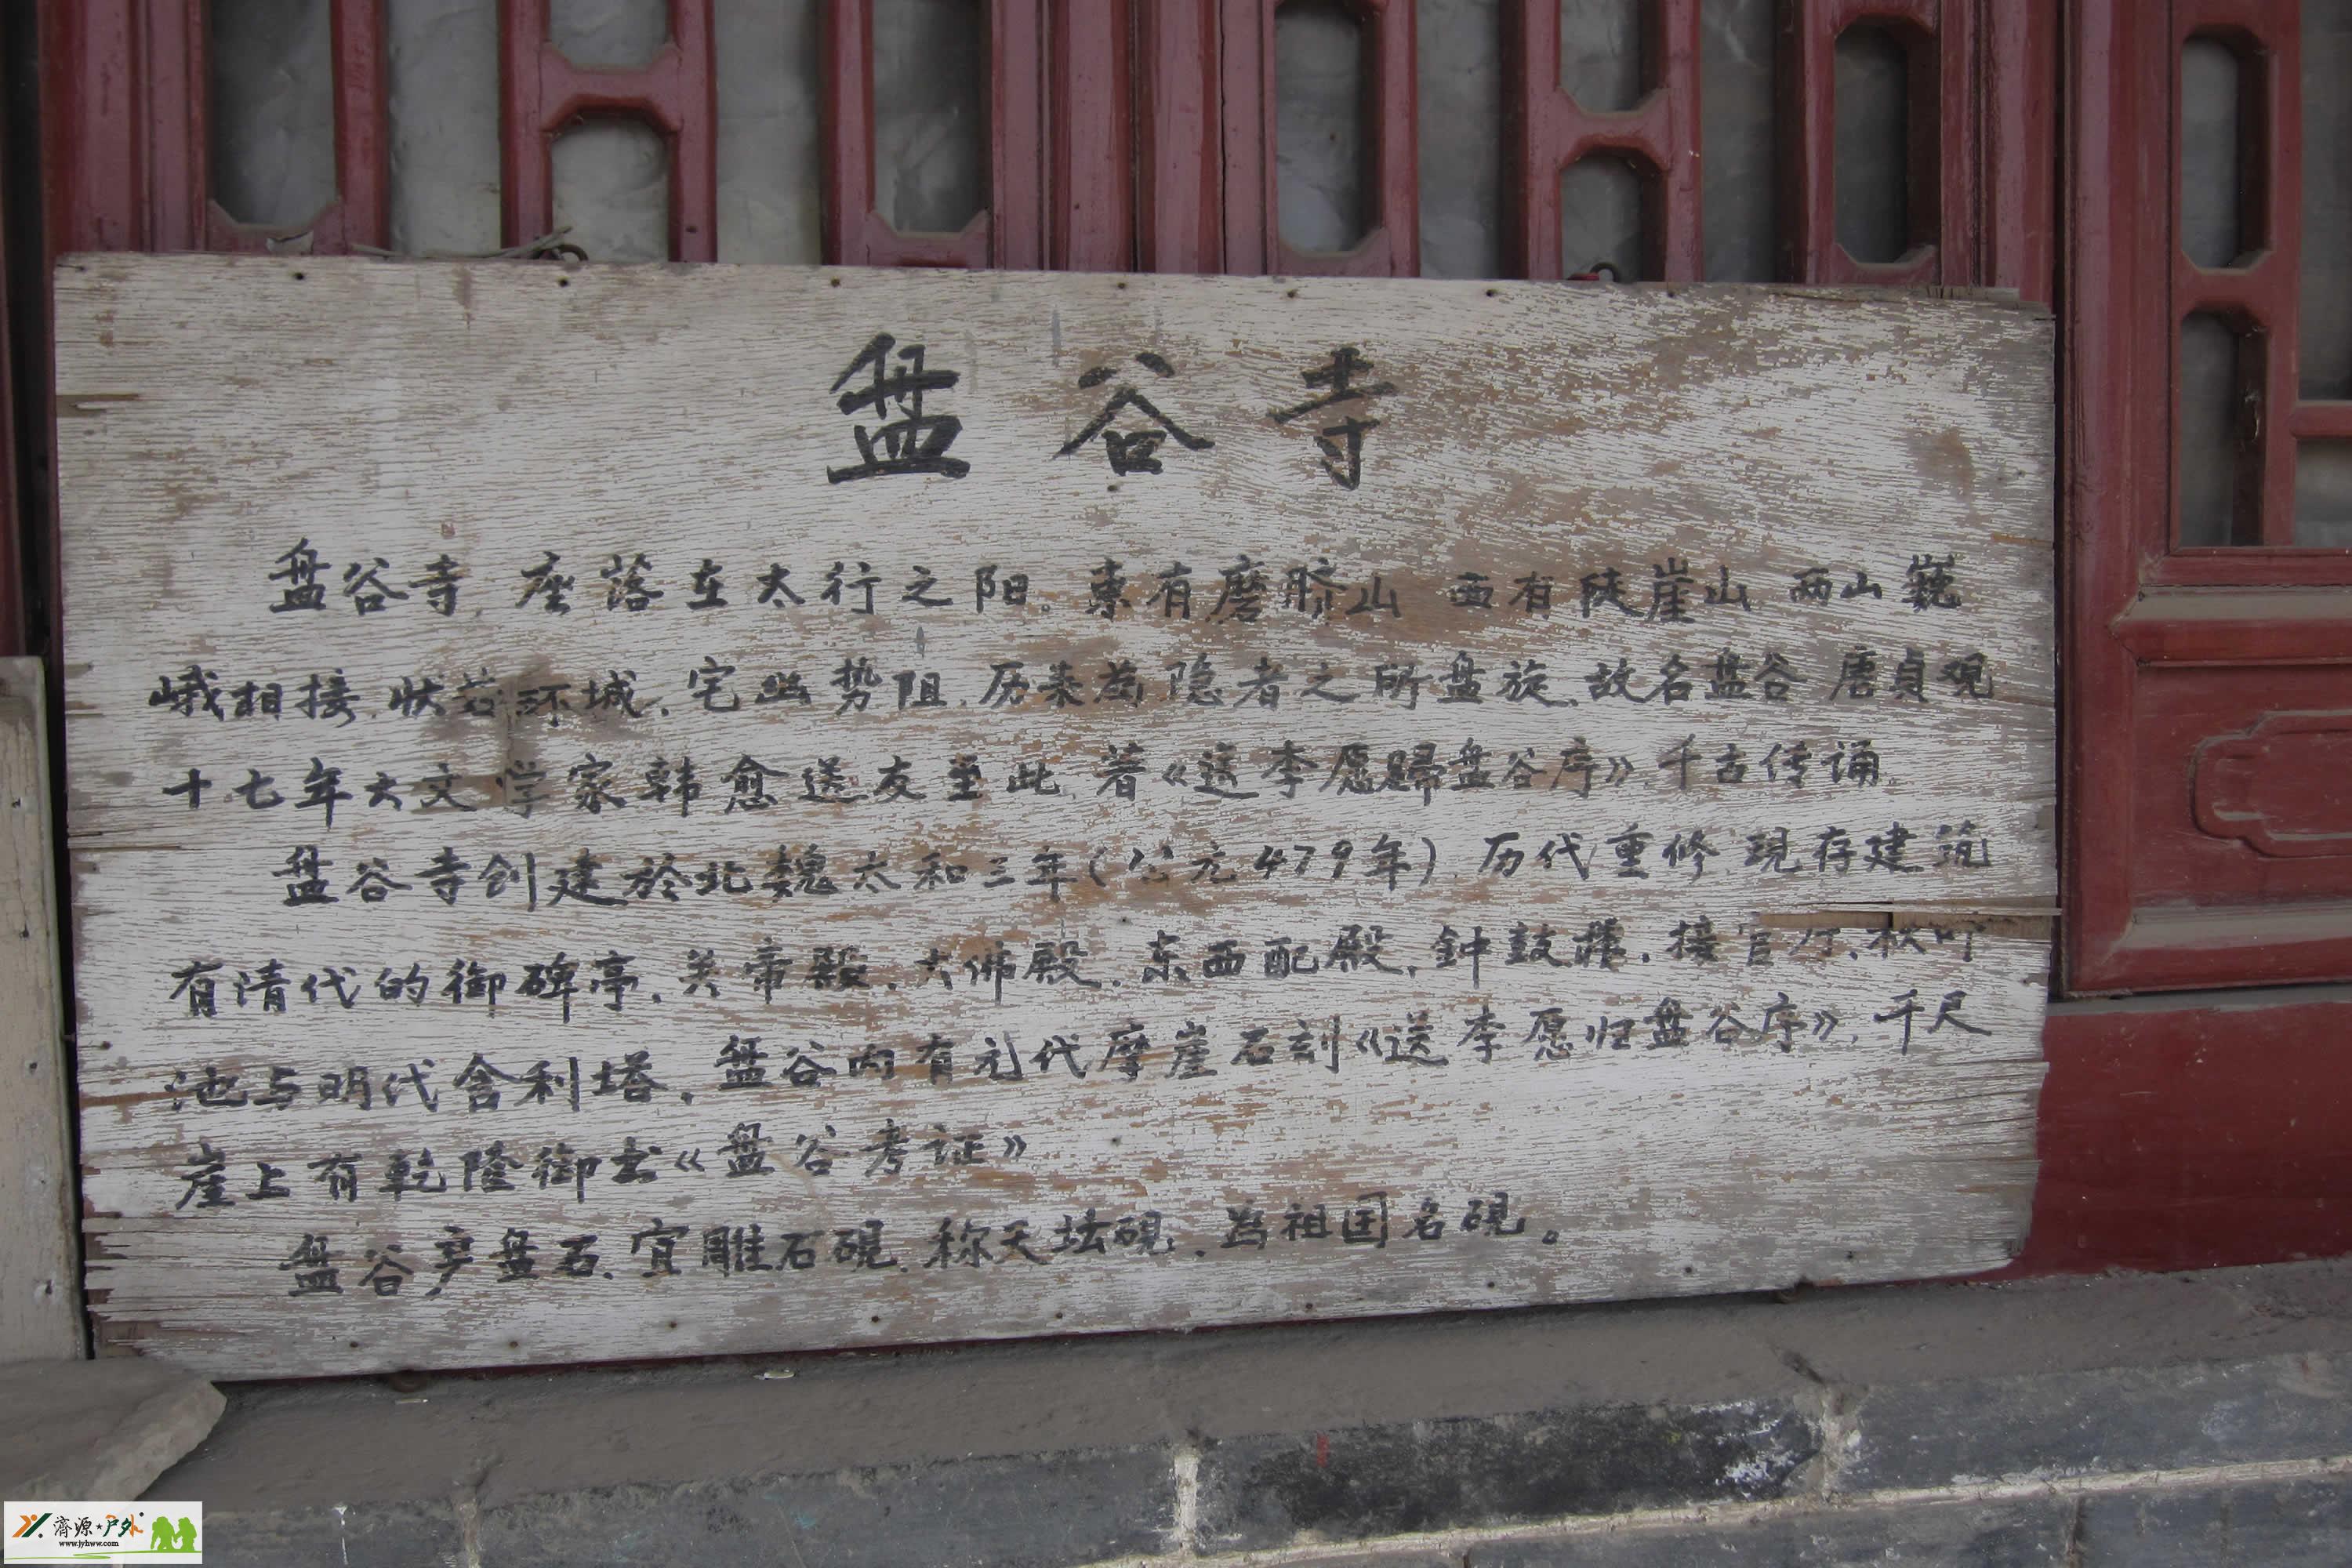 盘谷寺
盘谷寺,座落在太行之阳。東有磨脐山 西有陡崖山 两山巍
峨相接,状若环城,宅幽势阻,历来為隐者之所盘旋,故名盘谷 唐貞观
十七年大文学家韩愈送友至此,著《送李愿歸盘谷序》千古传诵.
盘谷寺创建於北魏太和三年(公元479年).历代重修.現存建筑
有清代的御碑亭,关帝殿,大佛殿,东西配殿,钟鼓楼,接官厅,
池与明代舍利塔.盘谷内有元代摩崖石刻《送李愿归盘谷序》,千尺
崖上有乾隆御书《盘谷考证》
盘谷产盘石,宜雕石硯,称天坛硯,為祖国名硯。
濟源★户外
www.jyhww.com